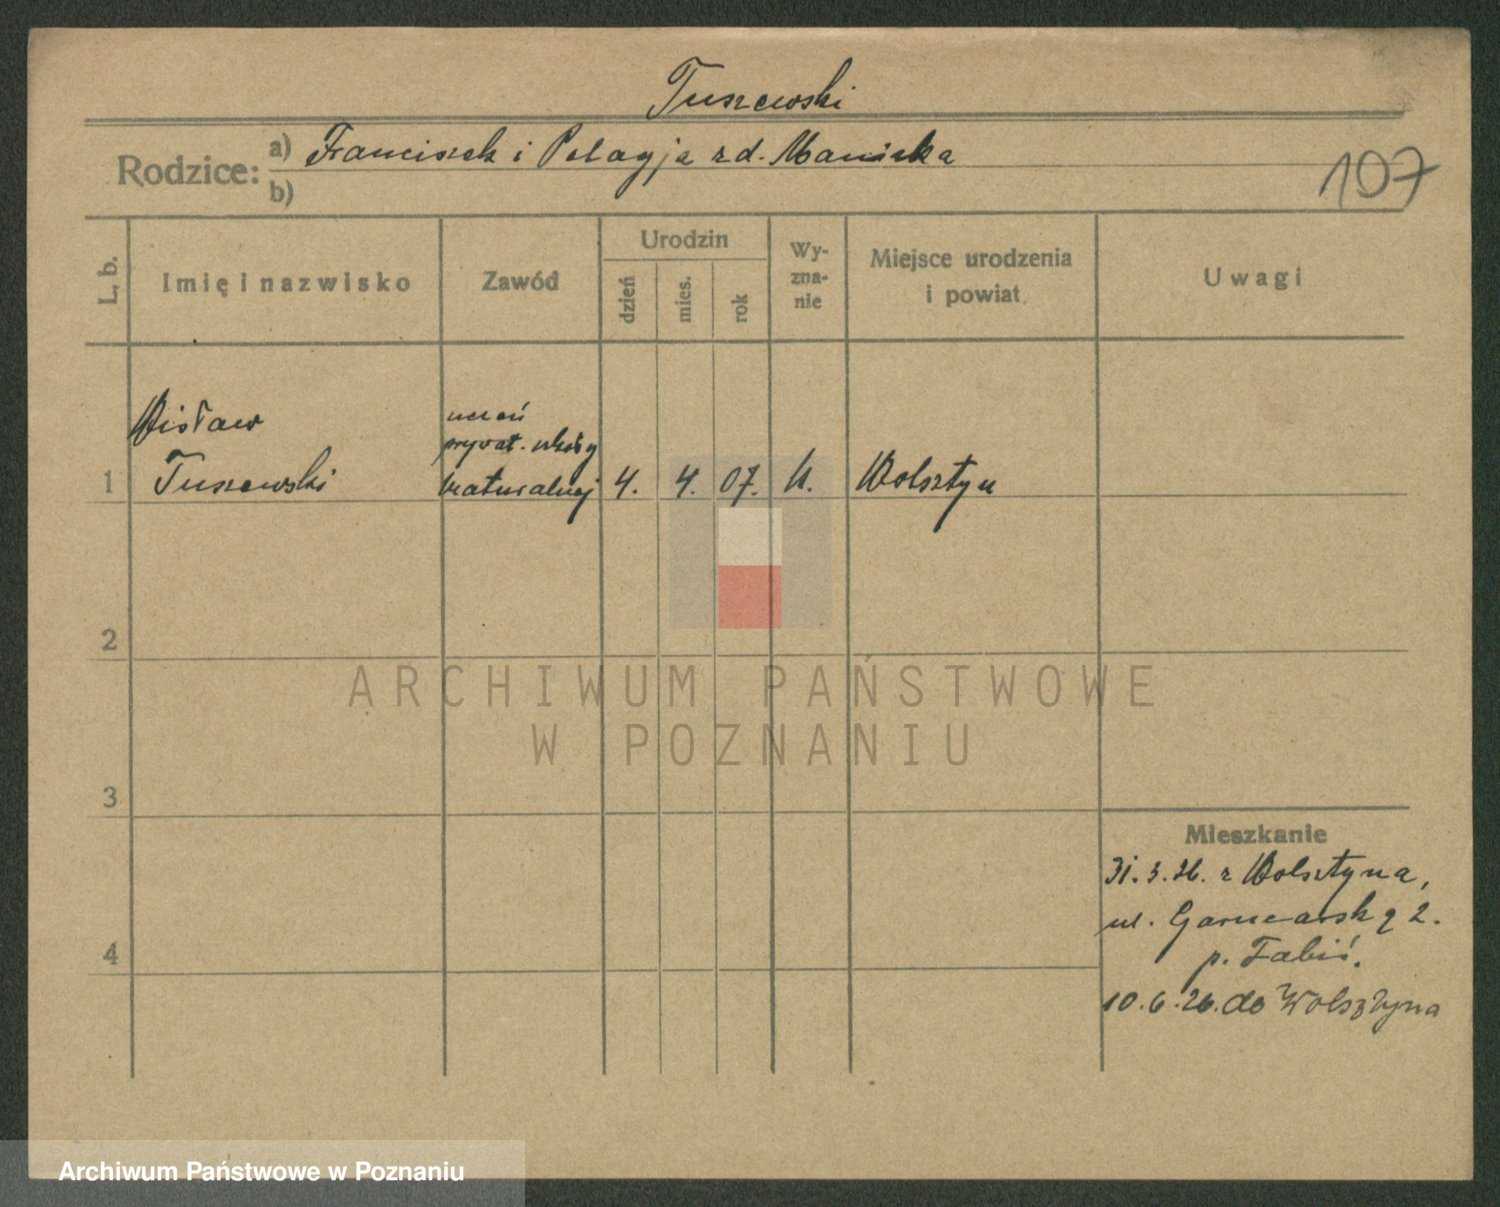 Tuszewski
Rodzice: a) Franciszek i Pelagja zd. Manicka
b)
107
L. b.
Imię i nazwisko
Zawód
Urodzin
dzień
mies.
rok
Wy-
zna-
nie
Miejsce urodzenia
i powiat
Uwagi
Wisław
uczeń
prywat. szkoły
1 Tuszewski maturalnej 4. 4. 07. k. Wolsztyn
2
ARCHIWUM PAŃSTWOWE
W POZNANIU
3
Mieszkanie
31.3.26. z Wolsztyna,
ul. Garncarska 2.
p. Fabiś.
4
10.6.26. do Wolsztyna
Archiwum Państwowe w Poznaniu